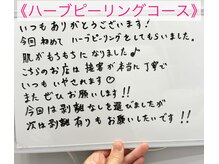 《ハーブピーリングコース》
いつもありがとうございます！
今回初めて ハーブピーリングをしてもらいました。
肌がもちもちになりました♪
こちらのお店は接客が本当に丁寧で
いつもいやされます♡
またぜひお願いします！！
今回は剥離なしを選びましたが
次は剥離有りもお願いしたいです！！